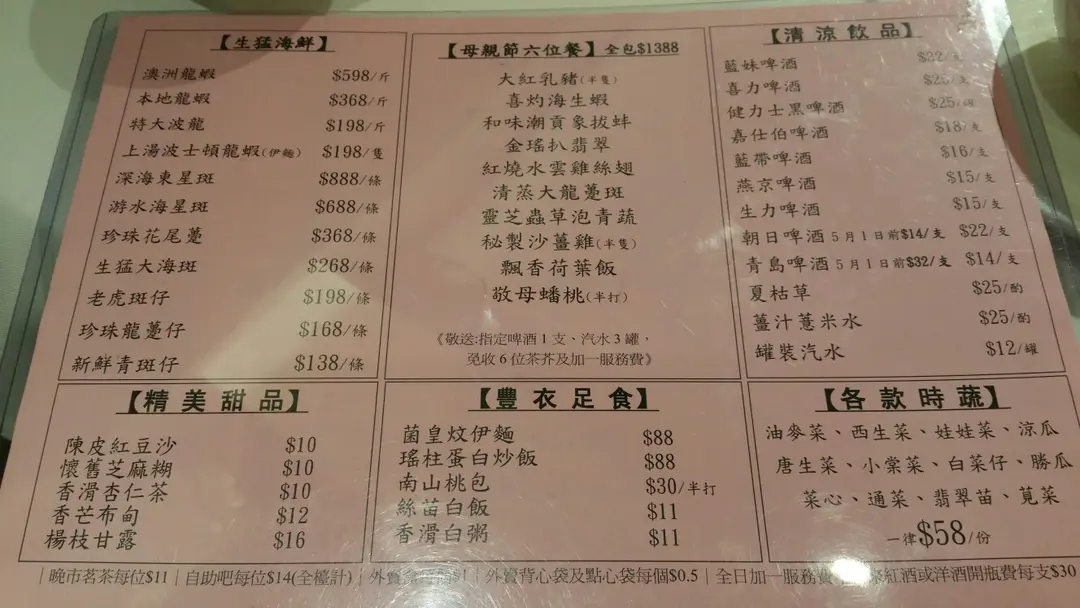 【生猛海鮮】
澳洲龍蝦 $598/斤
本地龍蝦 $368/斤
特大波龍 $198/斤
上湯波士頓龍蝦(伊麵) $198/隻
深海東星斑 $888/條
游水海星斑 $688/條
珍珠花尾躉 $368/條
生猛大海斑 $268/條
老虎斑仔 $198/條
珍珠龍躉仔 $168/條
新鮮青斑仔 $138/條
【母親節六位餐】全包$1388
大紅乳豬(半隻)
喜灼海生蝦
和味潮貢象拔蚌
金瑤扒翡翠
紅燒水雲雞絲翅
清蒸大龍躉斑
靈芝蟲草泡青蔬
秘製沙薑雞(半隻)
飄香荷葉飯
敬母蟠桃(半打)
《敬送:指定啤酒1支、汽水3罐，
免收6位茶芥及加一服務費》
【清涼飲品】
藍妹啤酒 $32/支
喜力啤酒
健力士黑啤酒 $25/罐
嘉仕伯啤酒 $18/支
藍帶啤酒 $16/支
燕京啤酒 $15/支
生力啤酒 $15/支
朝日啤酒 5月1日前$14/支 $22/支
青島啤酒 5月1日前$32/支 $14/支
夏枯草 $25/酌
薑汁薏米水 $25/酌
罐裝汽水 $12/罐
【精美甜品】
陳皮紅豆沙 $10
懷舊芝麻糊 $10
香滑杏仁茶 $10
香芒布甸 $12
楊枝甘露 $16
【豐衣足食】
菌皇炆伊麵 $88
瑤柱蛋白炒飯 $88
南山桃包 $30/半打
絲苗白飯 $11
香滑白粥 $11
【各款時蔬】
油麥菜、西生菜、娃娃菜、涼瓜
唐生菜、小棠菜、白菜仔、勝瓜
菜心、通菜、翡翠苗、莧菜
一律$58/份
|晚市茗茶每位$11|自助吧每位$14(全檯計)|外賣 $1|外賣背心袋及點心袋每個$0.5|全日加一服務費 紅酒或洋酒開瓶費每支$30